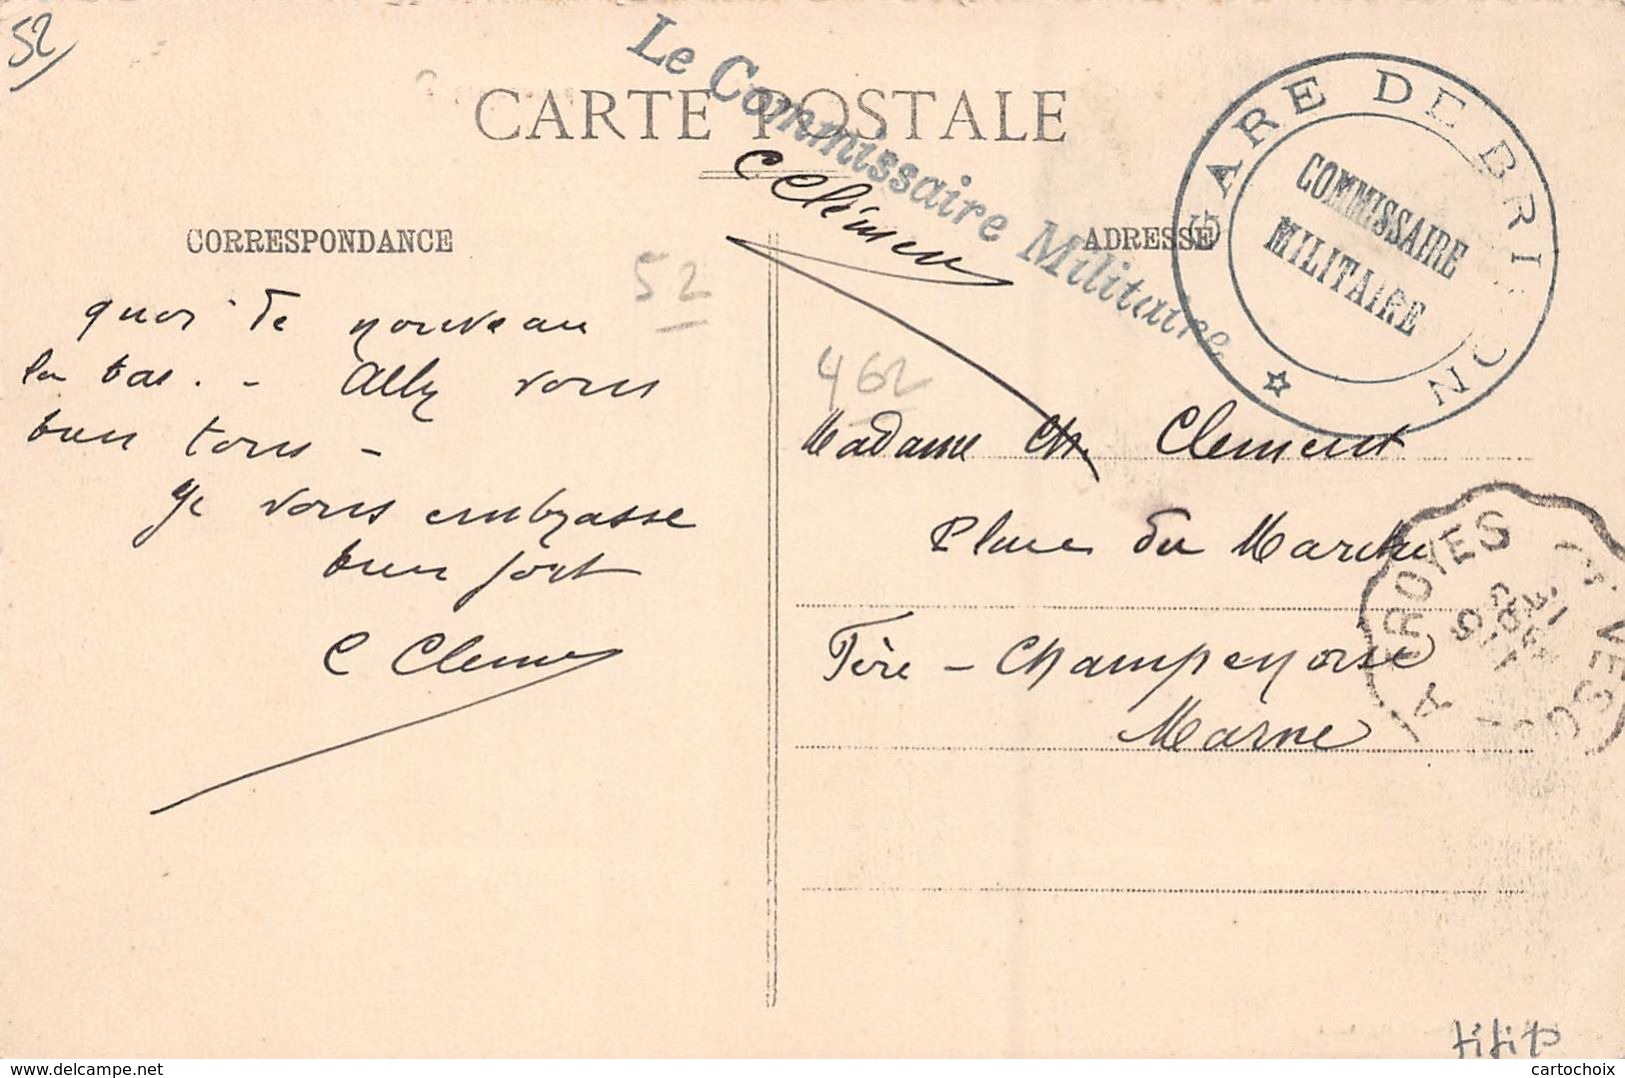 52
CARTE POSTALE
Le Commissaire Militaire
C Clément
GARE DE BRICON
COMMISSAIRE
MILITAIRE
CORRESPONDANCE
ADRESSE
52
462
quoi de nouveau
la bas. - Allez vous
bien tous -
Je vous embrasse
bien fort
C Clement
Madame Ch. Clement
Place du Marché
Fère - Champenoise
Marne
A TROYES
VESOUL
cartochoix